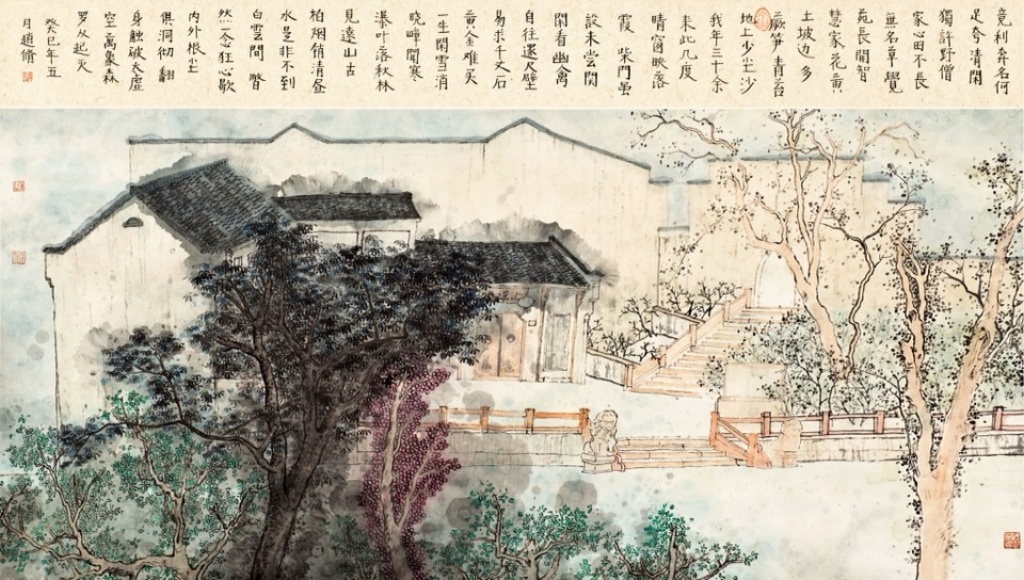 竟利奔名何
足夸清閒
獨許野僧
家心田不長
無名草覺
苑長開智
慧家花黄
土坡边多
蕨笋青苔
地上少尘沙
我年三十余
来此几度
晴窗映落
霞 柴門虽
設未尝関
閑看幽禽
自往還尺璧
易求千丈石
黄金难买
一生閑雪消
晓嶂聞寒
瀑叶落秋林
見遠山古
柏烟销清昼
永是非不到
白雲間 瞥
然一念狂心歇
内外根尘
俱洞彻 翻
身触破太虚
空萬象森
罗从起灭
癸巳年五
月趙